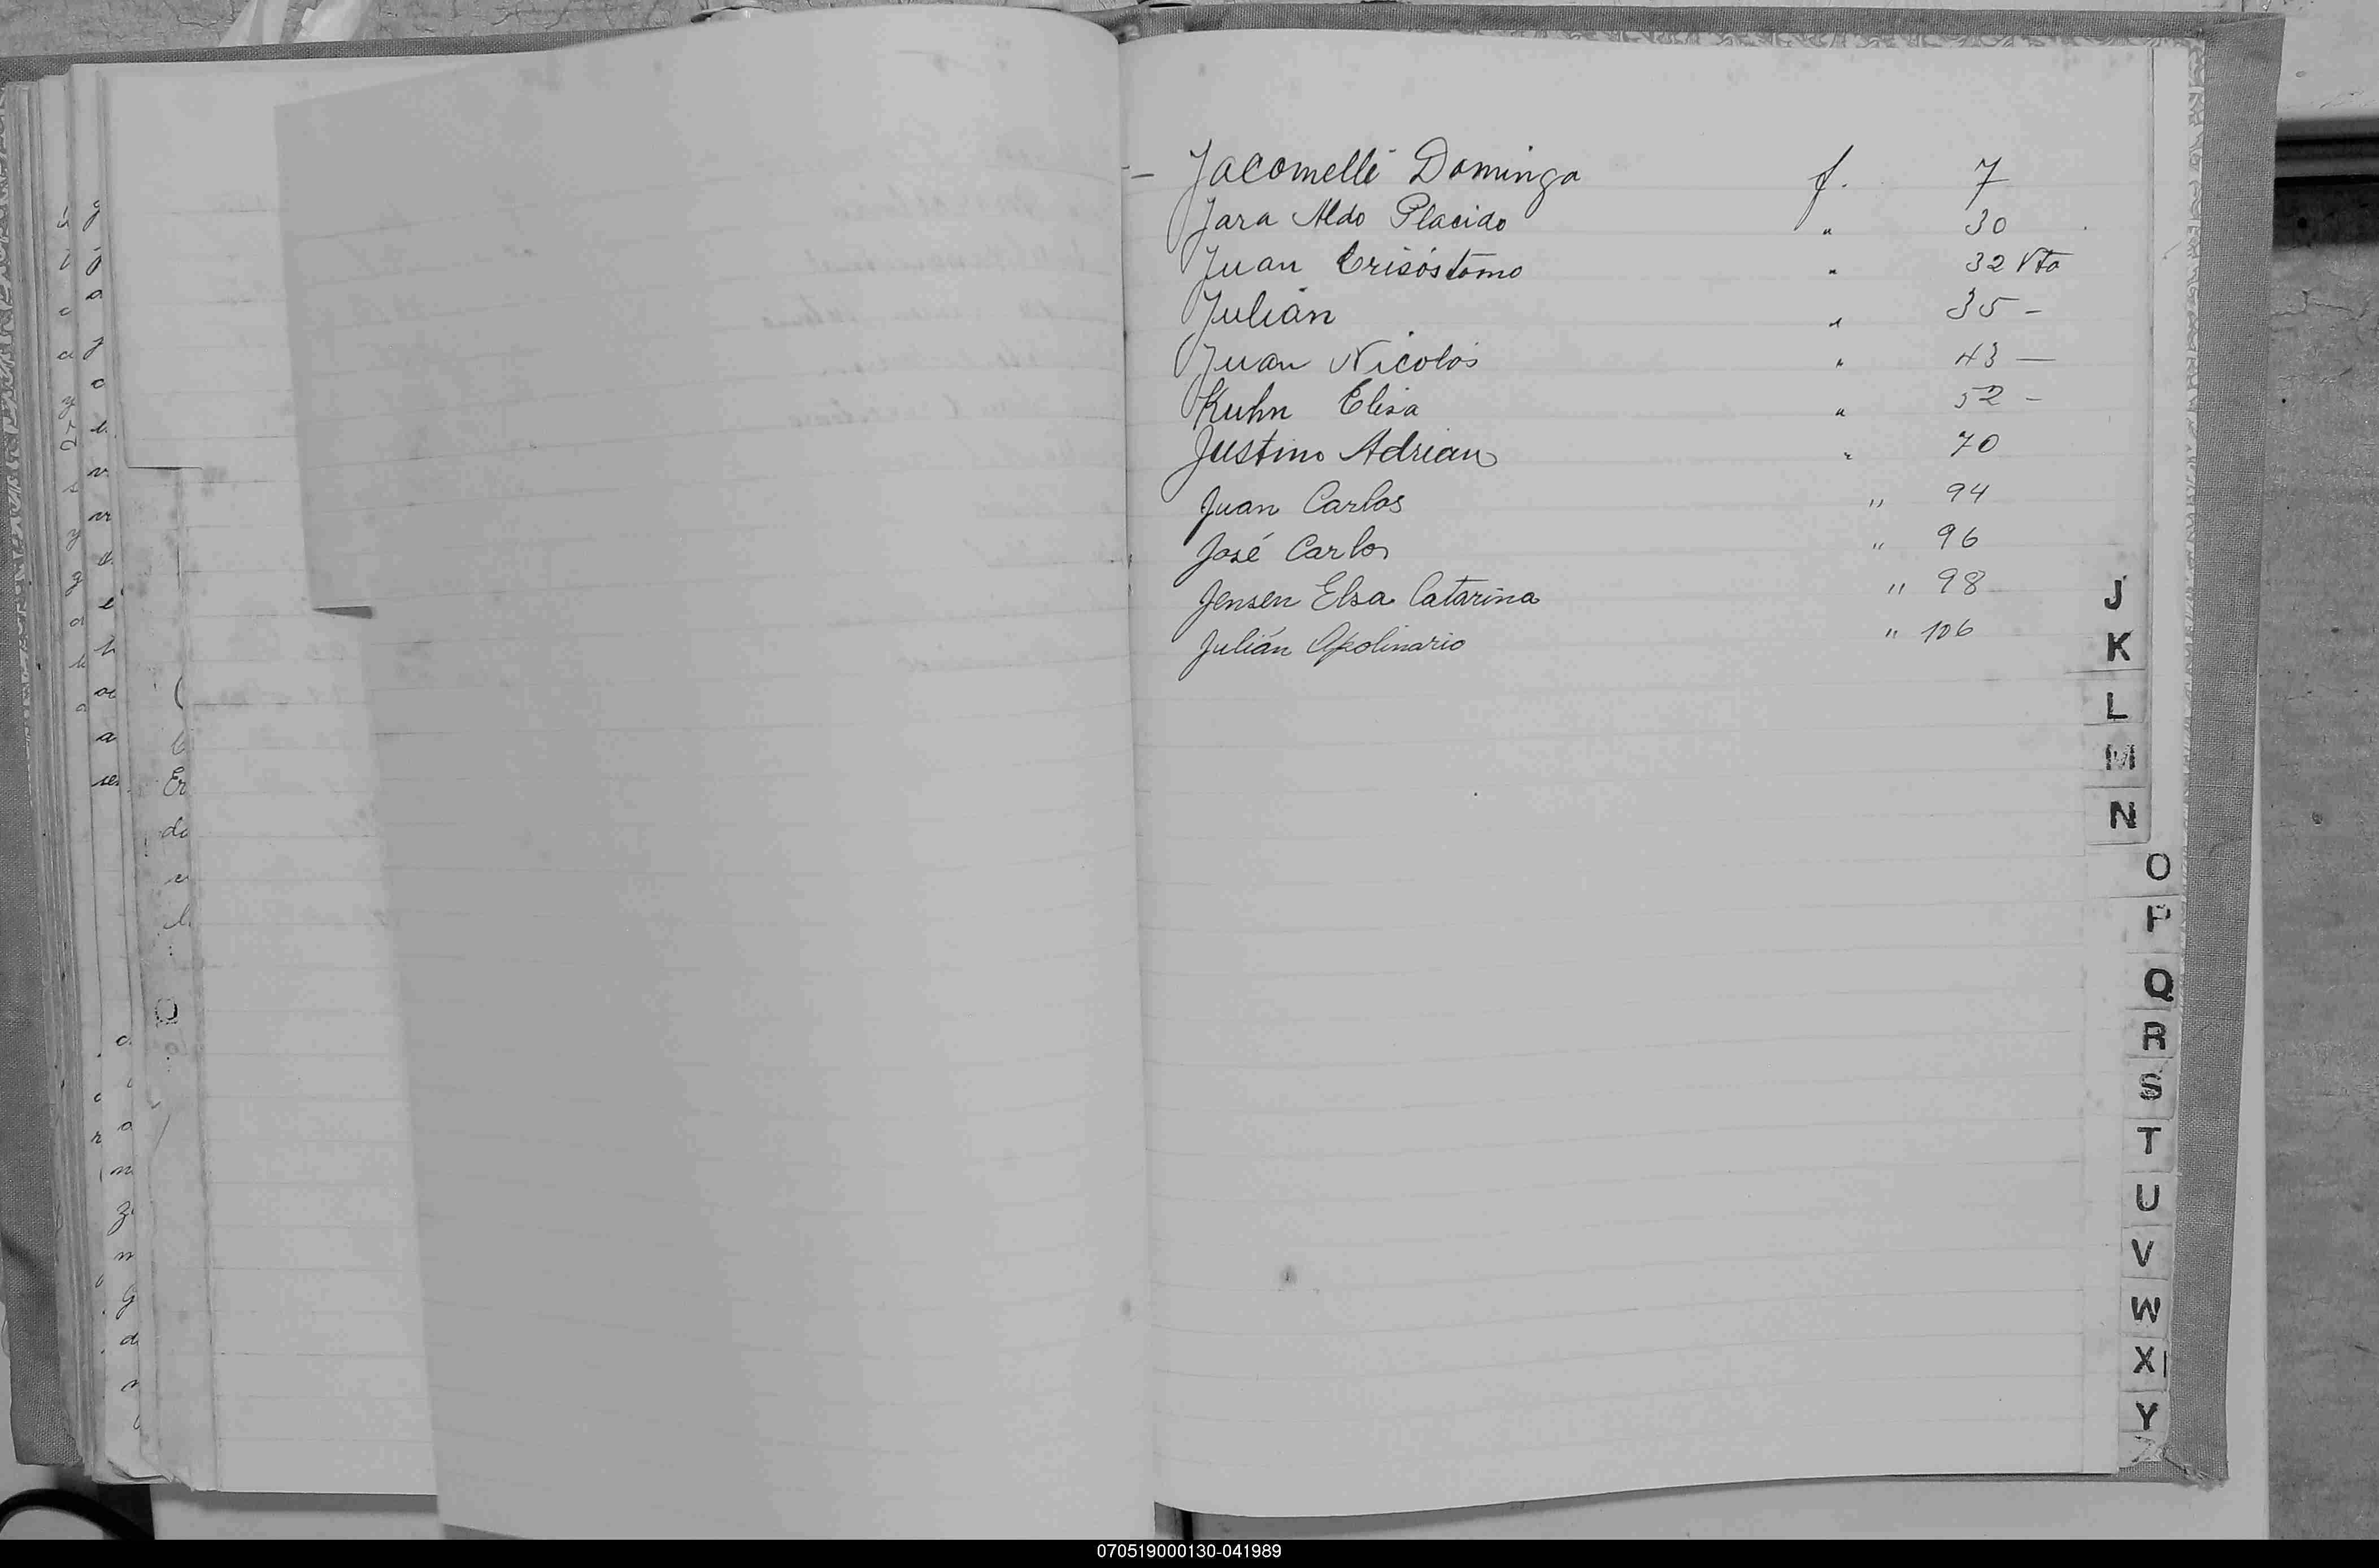 Jacomelli Domingo f. 7
Jara Aldo Placido " 30
Juan Crisóstomo " 32 Vta
Julián " 35 –
Juan Nicolás " 43 —
Kuhn Elisa " 52 –
Justino Adrian " 70
Juan Carlos " 94
José Carlos " 96
Jensen Elsa Catarina " 98
Julián Apolinario " 106
J
K
L
M
N
O
P
Q
R
S
T
U
V
W
X
Y
Z
070519000130-041989